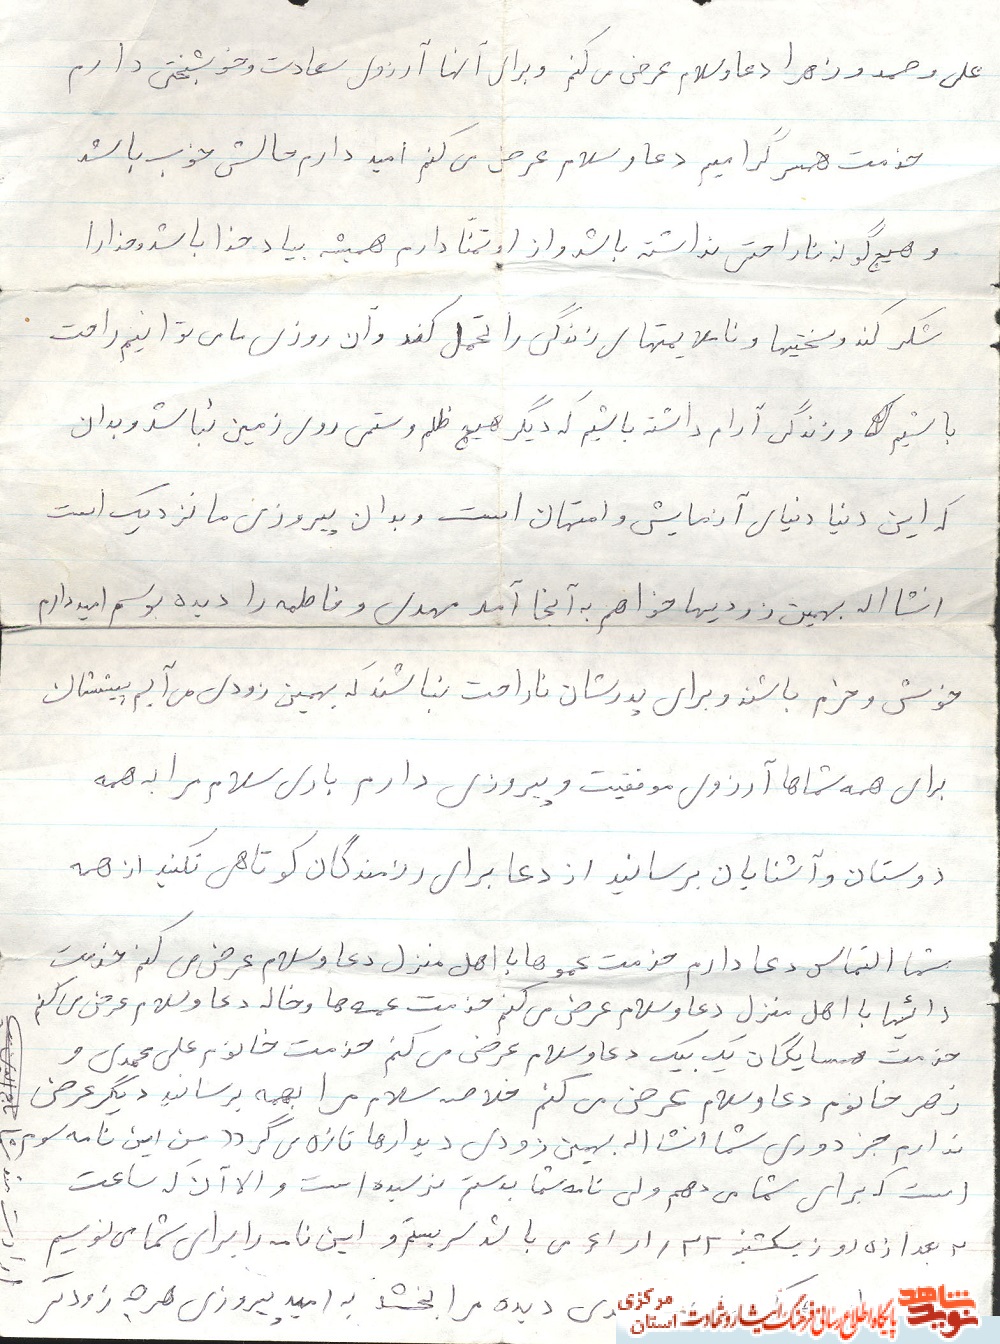 علی و صمد و زهرا دعا و سلام عرض می کنم و برای آنها آرزوی سعادت و خوشبختی دارم
خدمت همسر گرامیم دعا و سلام عرض می کنم امید دارم حالش خوب باشد
و هیچ گونه ناراحتی نداشته باشد و از او تمنا دارم همیشه بیاد خدا باشد و خدا را
شکر کند و سختیها و ناملایمتهای زندگی را تحمل کند و آن روزی ما می توانیم راحت
باشیم و زندگی آرام داشته باشیم که دیگر هیچ ظلم و ستمی روی زمین نباشد و بدان
که این دنیا دنیای آزمایش و امتهان است و بدان پیروزی ما نزدیک است
انشااله بهمین زودیها خواهم به آنجا آمد مهدی و فاطمه را دیده بوسم امید دارم
خوش و خرم باشند و برای پدرشان ناراحت نباشند که بهمین زودی می آیم پیششان
برای همه شماها آرزوی موفقیت و پیروزی دارم باری سلام مرا به همه
دوستان و آشنایان برسانید از دعا برای رزمندگان کوتاهی نکنید از همه
شما التماس دعا دارم خدمت عموها با اهل منزل دعا و سلام عرض می کنم خدمت
دائیها با اهل منزل دعا و سلام عرض می کنم خدمت عمه ها و خاله دعا و سلام عرض می کنم
خدمت همسایگان یک بیک دعا و سلام عرض می کنم خدمت خانوم علی محمدی و
زهر خانوم دعا و سلام عرض می کنم خلاصه سلام مرا بهمه برسانید دیگر عرضی
ندارم جز دوری شما انشااله بهمین زودی دیوارها تازه می گردد من این نامه سوم
است که برای شما می دهم ولی نامه شما بدستم نرسیده است و الا آن که ساعت
۲ بعد از ظهر روز یکشنبه می باشد و این نامه را برای شما می نویسم
دیده مرا بخشد به امید پیروزی هر چه زودتر
نوید شاهد
پایگاه اطلاع رسانی فرهنگ ایثار و شهادت
استان مرکزی